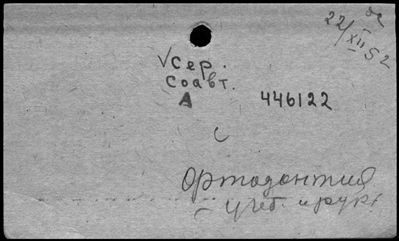 22/XII 52
Vсер.
Соавт.
А 446122
с
Ортодонтия
– учеб. и рук.